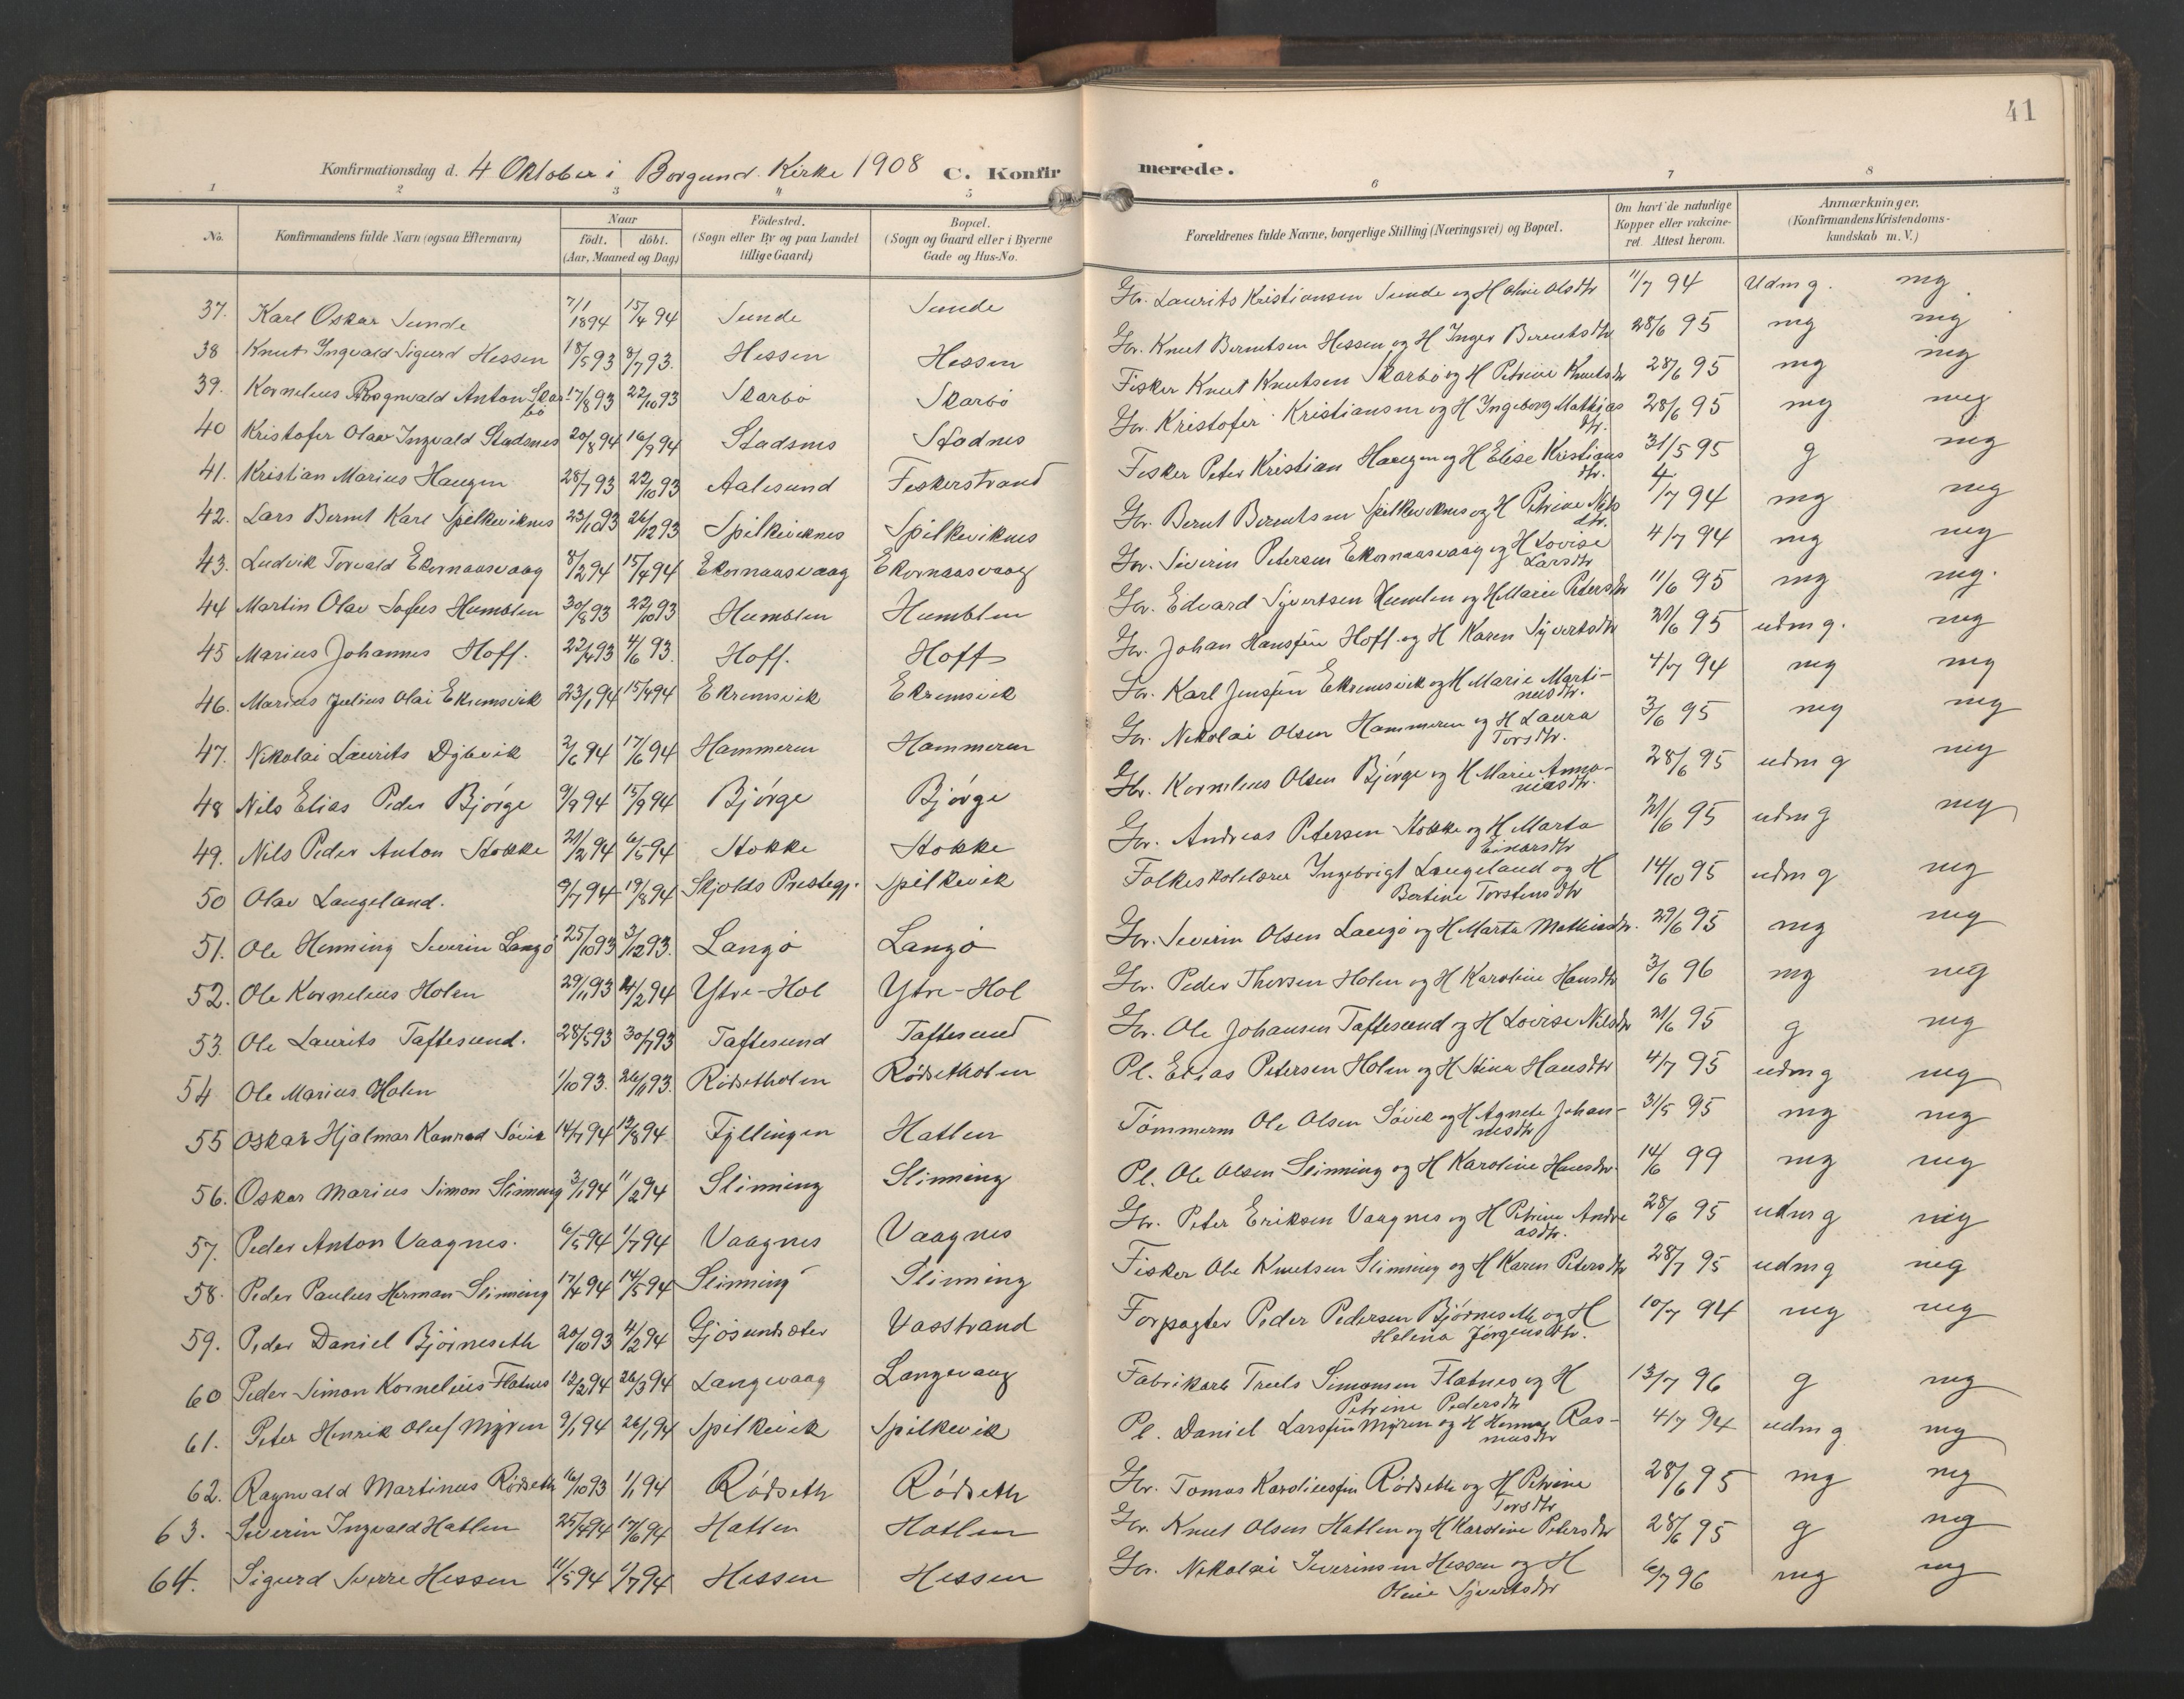 41
Konfirmationsdag d. 4 Oktober i Borgund Kirke 1908 C. Konfirmerede.
1 2 3 4 5 6 7 8
No.
Konfirmandens fulde Navn (ogsaa Efternavn)
Naar
födt. döbt.
(Aar, Maaned og Dag)
Födested.
(Sogn eller By og paa Landet
tillige Gaard)
Bopæl.
(Sogn og Gaard eller i Byerne
Gade og Hus-No.
Forældrenes fulde Navne, borgerlige Stilling (Næringsvei) og Bopæl.
Om havt de naturlige
Kopper eller vakcine-
ret. Attest herom.
Anmærkninger.
(Konfirmandens Kristendoms-
kundskab m.V.)
37. Karl Oskar Sunde 7/1 1894 15/4 94 Sunde Sunde Gbr. Laurits Kristiansen Sunde og H Oline Olsdtr 11/7 94 Udm g. mg
38 Knut Ingvald Sigurd Hessen 18/5 93 8/7 93. Hessen Hessen Gbr. Knut Berntsen Hessen og H Inger Berentsdtr 28/6 95 mg mg
39. Kornelius Rognvald Anton Skarbö 17/8 93 22/10 93 Skarbö Skarbö Fisker Knut Knutsen Skarbö og H Petrine Knutsdtr 28/6 95 mg mg
40 Kristofer Olav Ingvald Stadsnes 20/8 94 16/9 94 Stadsnes Stadnes Gbr. Kristofer Kristiansen og H Ingeborg Mathiasdtr. 28/6 95 mg meg
41. Kristian Marius Haugen 28/7 93 22/10 93 Aalesund Fiskerstrand Fisker Peter Kristian Haugen og H Elise Kristiansdtr. 31/5 95 g mg
42. Lars Bernt Karl Spilkeviknes 23/10 93 26/12 93 Spilkeviknes Spilkeviknes Gbr. Bernt Berentsen Spilkeviknes og H Petrine Nilsdtr. 4/7 94 mg mg
43. Ludvik Torvald Ekornaasvaag 8/2 94 15/4 94 Ekornaasvaag Ekornaasvaag Gbr. Severin Petersen Ekornaasvaag og H Lovise Larsdtr 4/7 94 mg mg
44 Martin Olav Sofus Humblen 30/8 93 22/10 93 Humblen Humblen Gbr. Edvard Syvertsen Humlen og H Marie Petersdtr 11/6 95 mg mg.
45 Marius Johannes Hoff. 22/4 93 4/6 93. Hoff. Hoff Gbr. Johan Hanssen Hoff. og H Karen Syvertsdtr 21/6 95 udm g. mg
46. Marius Julius Olai Ekremsvik 23/1 94 15/4 94 Ekremsvik Ekremsvik Gbr. Karl Jenssen Ekremsvik og H Marie Martinusdtr. 4/7 94 mg mg
47. Nikolai Laurits Dybvik 2/6 94 17/6 94 Hammeren Hammeren Gbr. Nikolai Olsen Hammeren og H Laura Torsdtr. 3/6 95 mg mg
48 Nils Elias Peder Bjørge 9/9 94 15/9 94 Bjørge Bjørge Gbr. Kornelius Olsen Bjørge og H Marie Annaniasdtr. 28/6 95 udm g mg
49. Nils Peder Anton Stokke 21/2 94 6/5 94 Stokke Stokke Gbr. Andreas Petersen Stokke og H Marta Einarsdtr 21/6 95 udm g mg
50 Olav Langeland. 9/7 94 19/8 94 Skjolds Prestegj. Spilkevik Folkeskolelærer Ingebrigt Langeland og H Bertine Torstensdtr 14/10 95 udm g mg
51. Ole Henning Severin Langö 25/10 93 3/12 93. Langö Langö Gbr. Severin Olsen Langö og H Marta Mathiasdtr. 29/6 95 mg mg
52. Ole Kornelius Holen 29/11 93 4/2 94 Ytre-Hol Ytre-Hol Gbr. Peder Thorsen Holen og H Karoline Hansdtr 3/6 96 mg mg
53. Ole Laurits Taftesund. 28/5 93 30/7 93 Taftesund Taftesund Gbr. Ole Johansen Taftesund og H Lovise Nilsdtr 21/6 95 g mg
54 Ole Marius Holen 1/10 93. 26/11 93. Rödsetholen Rödsetholen Pl. Elias Petersen Holen og H Stina Hansdtr 4/7 95 udm g mg
55 Oskar Hjalmar Konrad Søvik 14/7 94 12/8 94 Fyllingen Hatlen Tömmerm Ole Olsen Søvik og H Agnete Johannesdtr 31/5 95 mg mg
56. Oskar Marius Simon Slinning 3/1 94 11/2 94 Slinning Slinning Pl. Ole Olsen Slinning og H Karoline Hansdtr 14/6 99 mg mg
57. Peder Anton Vaagnes. 6/5 94 1/7 94 Vaagnes Vaagnes Gbr. Peter Eriksen Vaagnes og H Petrine Andreasdtr. 28/6 95 udm g mg
58. Peder Paulus Herman Slinning 17/4 94 14/5 94 Slinning Slinning Fisker Ole Knutsen Slinning og H Karen Petersdtr 28/7 95 udm g mg
59. Peder Daniel Bjørneseth 20/10 93 4/2 94 Gjösundsæter Vasstrand Forpagter Peder Pedersen Bjørneseth og H Helena Jørgensdtr. 10/7 94 mg mg
60 Peder Simon Kornelius Flatnes 12/2 94 26/3 94 Langevaag Langevaag Fabrikarb Truls Simonsen Flatnes og H Petrine Pedersdtr 13/7 96 g mg
61. Peter Henrik Oluf Myren 9/1 94 26/1 94 Spilkevik Spilkevik Pl. Daniel Larssen Myren og H Hanna Rasmusdtr 4/7 94 udm g mg
62. Ragnvald Martinus Rødseth 16/10 93 1/1 94 Rødseth Rødseth Gbr. Tomas Karoliussen Rødseth og H Petrine Torsdtr 28/6 95 mg mg
63. Severin Ingvald Hatlen 25/4 94 17/6 94 Hatlen Hatlen Gbr. Knut Olsen Hatlen og H Karoline Petersdtr 28/6 95 g mg
64. Sigurd Sverre Hessen 11/5 94 1/7 94 Hessen Hessen Gbr. Nikolai Severinsen Hessen og H Oline Syvertsdtr 6/7 96 mg mg